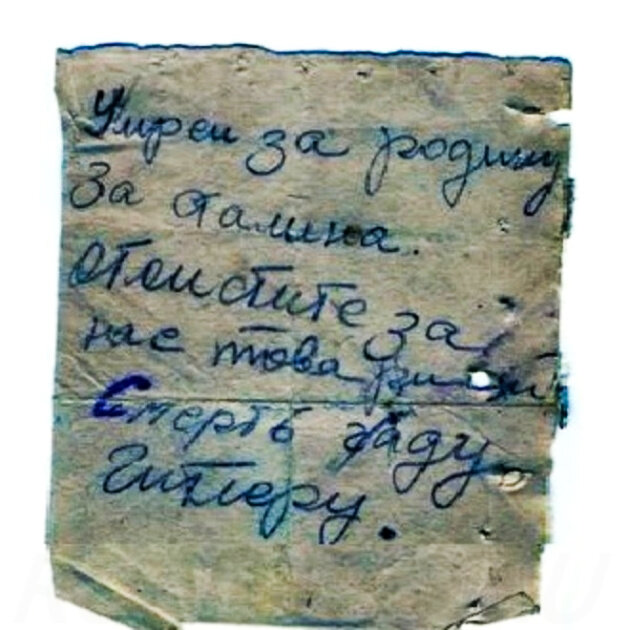 Умрем за родину
За Сталина.
отомстите за
нас товарищи
Смерть гаду
Гитлеру.